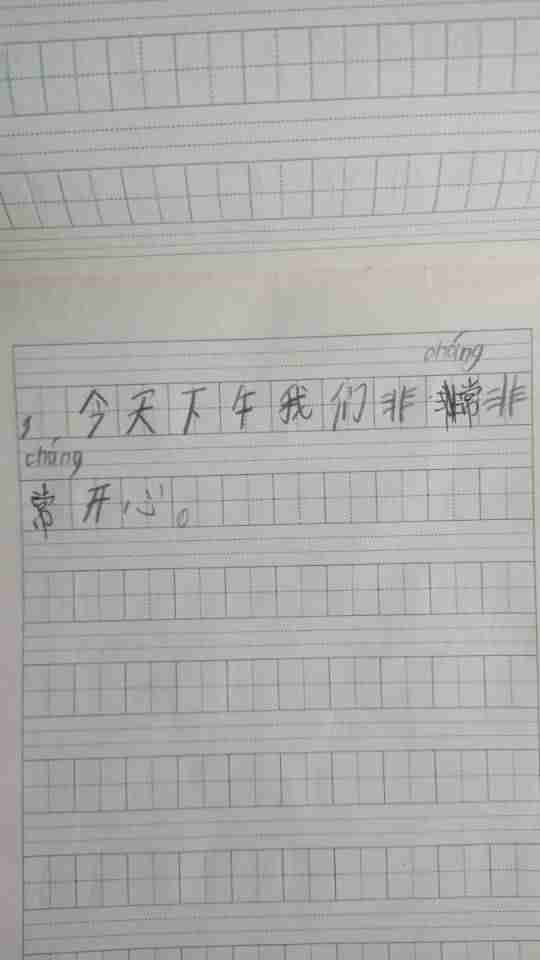 cháng
，今天下午我们非常非
cháng
常开心。